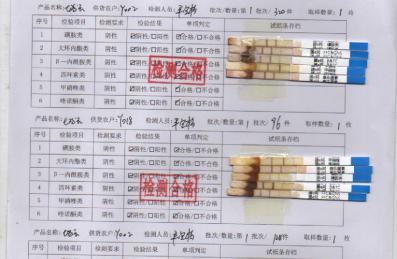 供货农户: Y002 检测人员: 批次/数量: 第 1 批次/ 300 件 取样数量: 1 枚
序号 检验项目 检测要求 检验结果 单项判定 试纸条存档
1 磺胺类 阴性 ☑阴性/□阳性 ☑合格/□不合格
2 大环内酯类 阴性 ☑阴性/□阳性 ☑合格/□不合格
3 β-内酰胺类 阴性 ☑阴性/□阳性 ☑合格/□不合格
4 四环素类 阴性 ☑阴性/□阳性 ☑合格/□不合格
5 甲硝唑类 阴性 ☑阴性/□阳性 ☑合格/□不合格
6 喹诺酮类 阴性 ☑阴性/□阳性 ☑合格/□不合格
检测合格
产品名称: 供货农户: Y018 检测人员: 批次/数量: 第 1 批次/ 96 件 取样数量: 1 枚
序号 检验项目 检测要求 检验结果 单项判定 试纸条存档
1 磺胺类 阴性 ☑阴性/□阳性 ☑合格/□不合格
2 大环内酯类 阴性 ☑阴性/□阳性 ☑合格/□不合格
3 β-内酰胺类 阴性 ☑阴性/□阳性 ☑合格/□不合格
4 四环素类 阴性 ☑阴性/□阳性 ☑合格/□不合格
5 甲硝唑类 阴性 ☑阴性/□阳性 ☑合格/□不合格
6 喹诺酮类 阴性 ☑阴性/□阳性 ☑合格/□不合格
检测合格
产品名称: 供货农户: Y002 检测人员: 批次/数量: 第 1 批次/ 件 取样数量: 1 枚
序号 检验项目 检测要求 检验结果 单项判定 试纸条存档